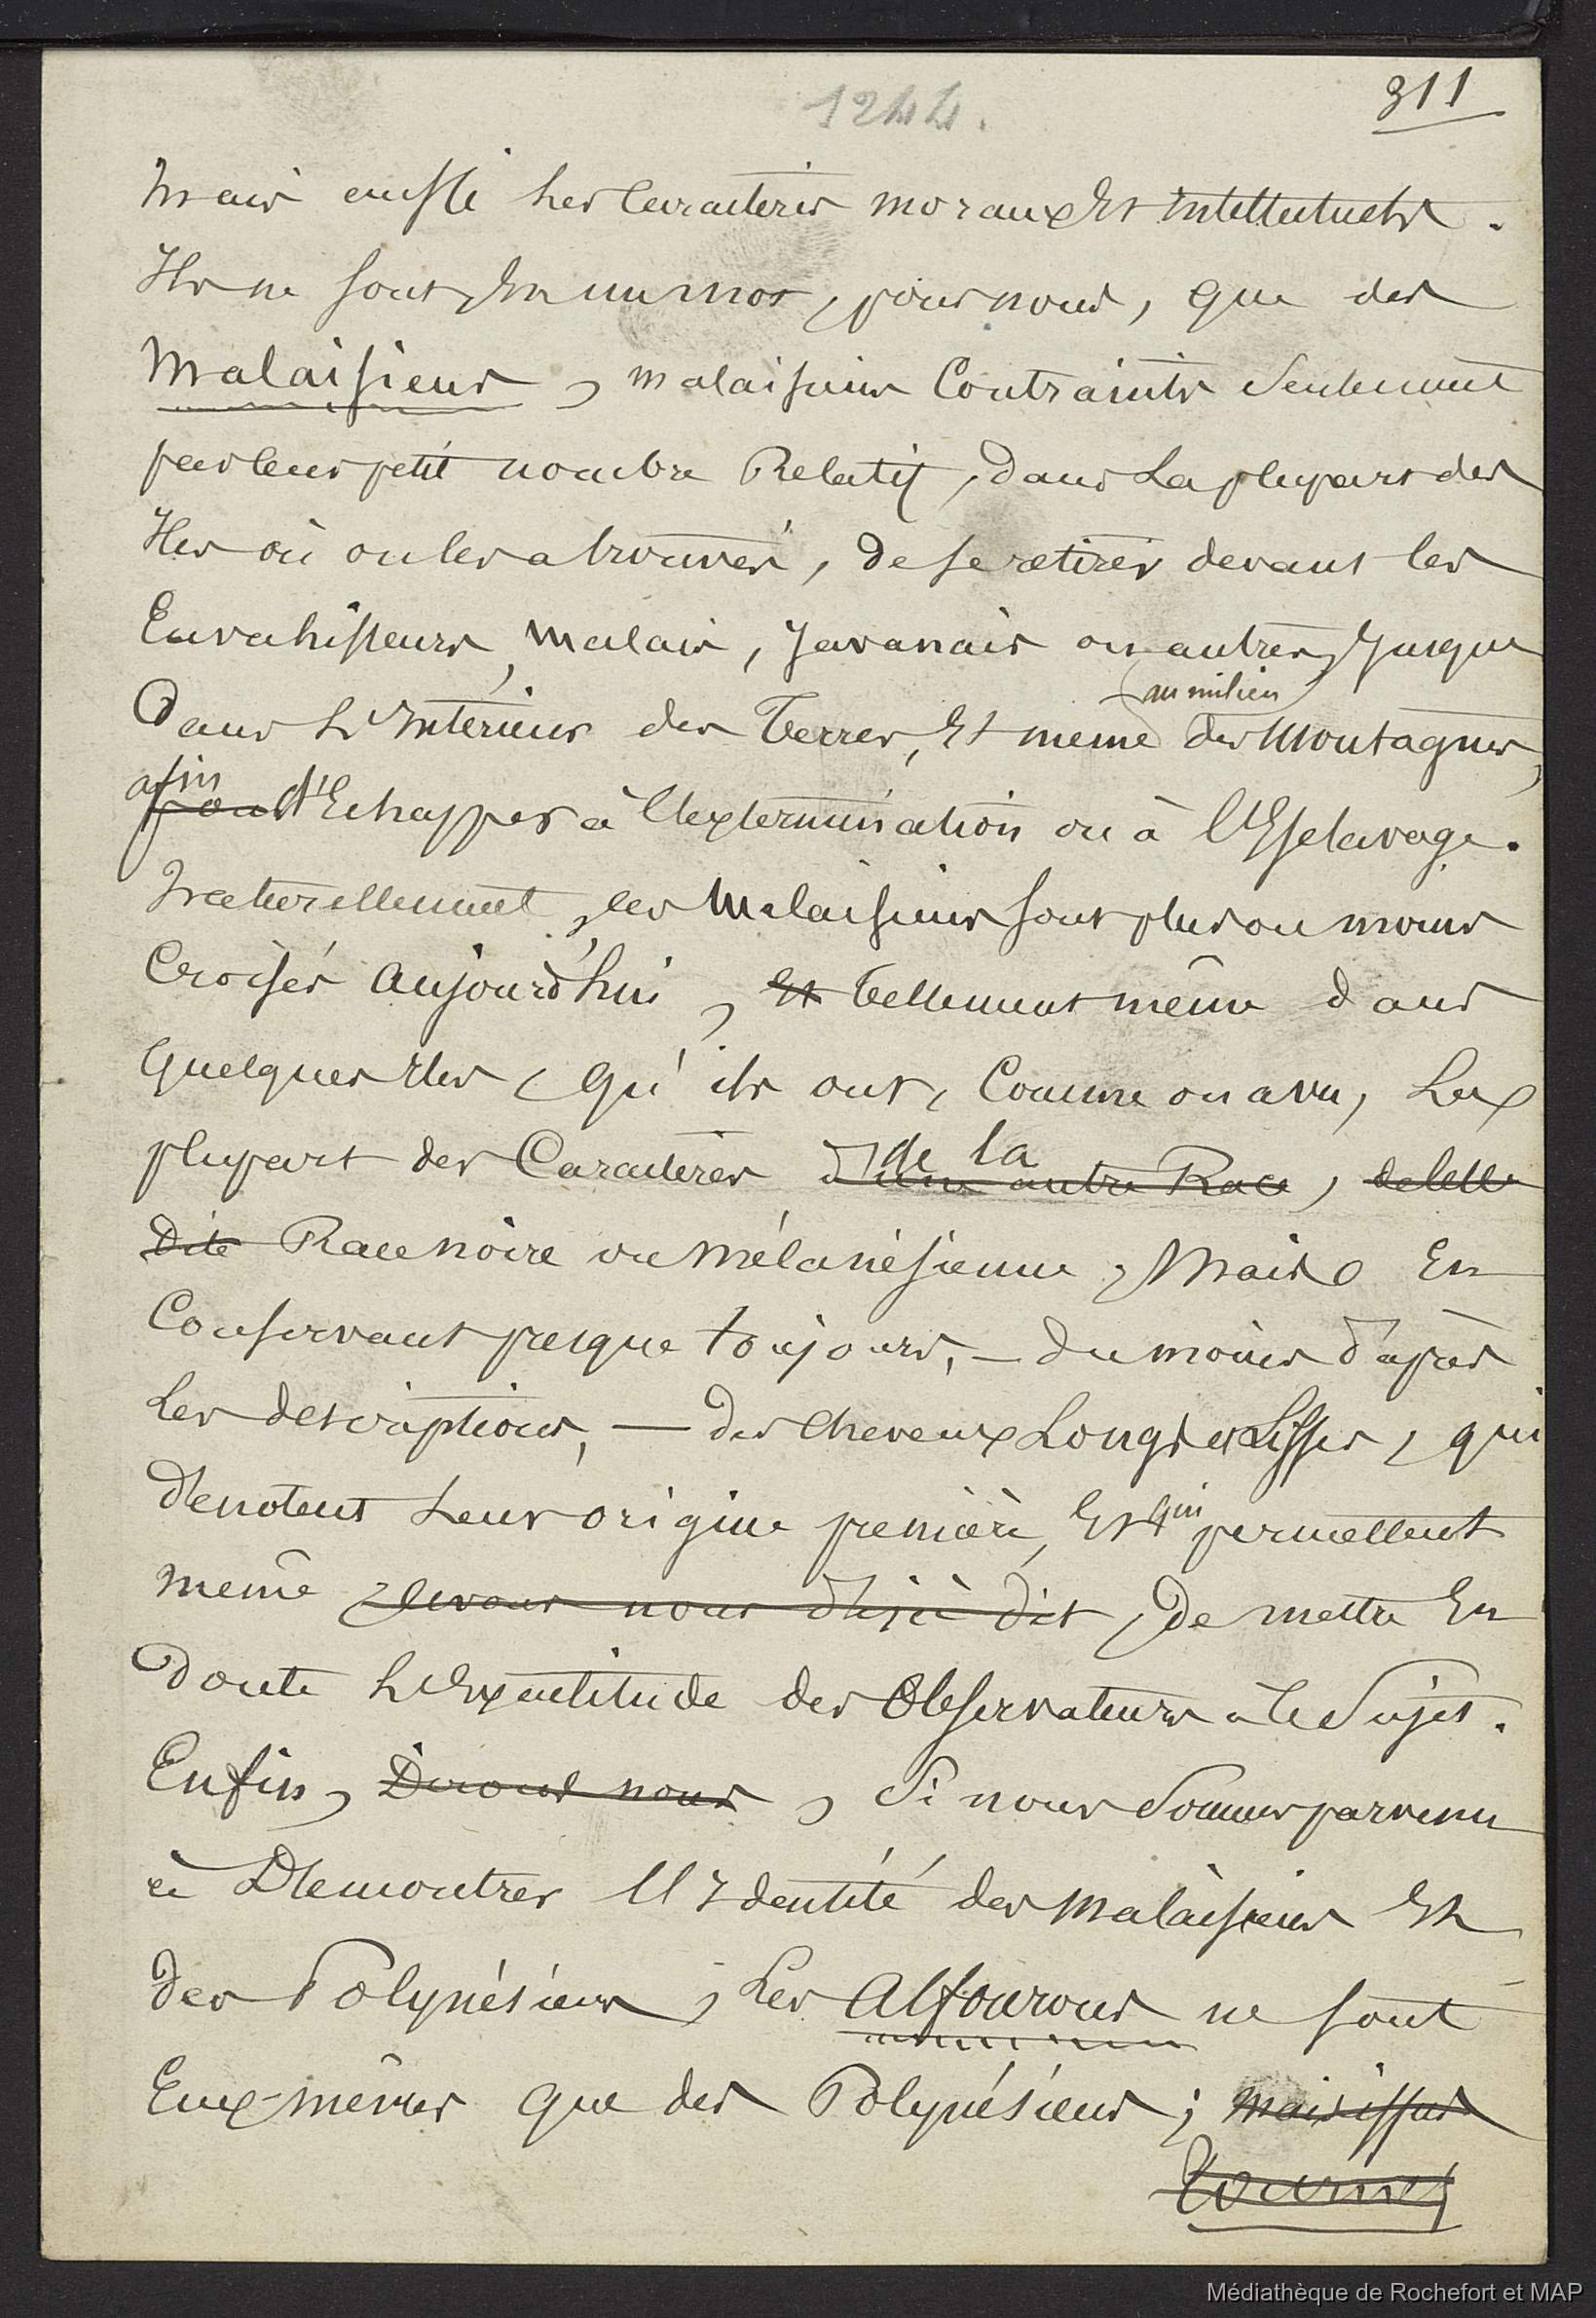 1244.
311
mais aussi les Caractères moraux Et intellectuels.
Ils ne sont, En un mot, pour nous, que des
Malaisiens, malaisiens Contraints Seulement
par leur petit nombre Relatif, dans La plupart des
Iles où on les a trouvés, de se retirer devant les
Envahisseurs, Malais, Javanais ou autres, Jusque
au milieu
Dans L'Intérieur des Terres, Et même des Montagnes,
afin
pour d'Echapper à l'extermination ou à l'Esclavage.
Naturellement, les Malaisiens sont plus ou moins
Croisés aujourd'hui, Et tellement même dans
quelques Iles, qu'ils ont, Comme on a vu, La
de la
plupart des Caractères d'une autre Race, de celle
dite Race noire ou Mélanésienne, Mais En
Conservant presque toujours, — du moins d'après
Les descriptions, — des cheveux Longs et Lisses, qui
qui
dénotent Leur origine première, Et permettent
même, avons nous déjà dit, de mettre En
doute L'Exactitude des Observateurs à ce Sujet.
Enfin, Dirons nous, Si nous Sommes parvenu
à Démontrer l'Identité des Malaisiens Et
des Polynésiens, Les Alfourous ne sont
Eux-mêmes que des Polynésiens; mais issus
tournez
Médiathèque de Rochefort et MAP